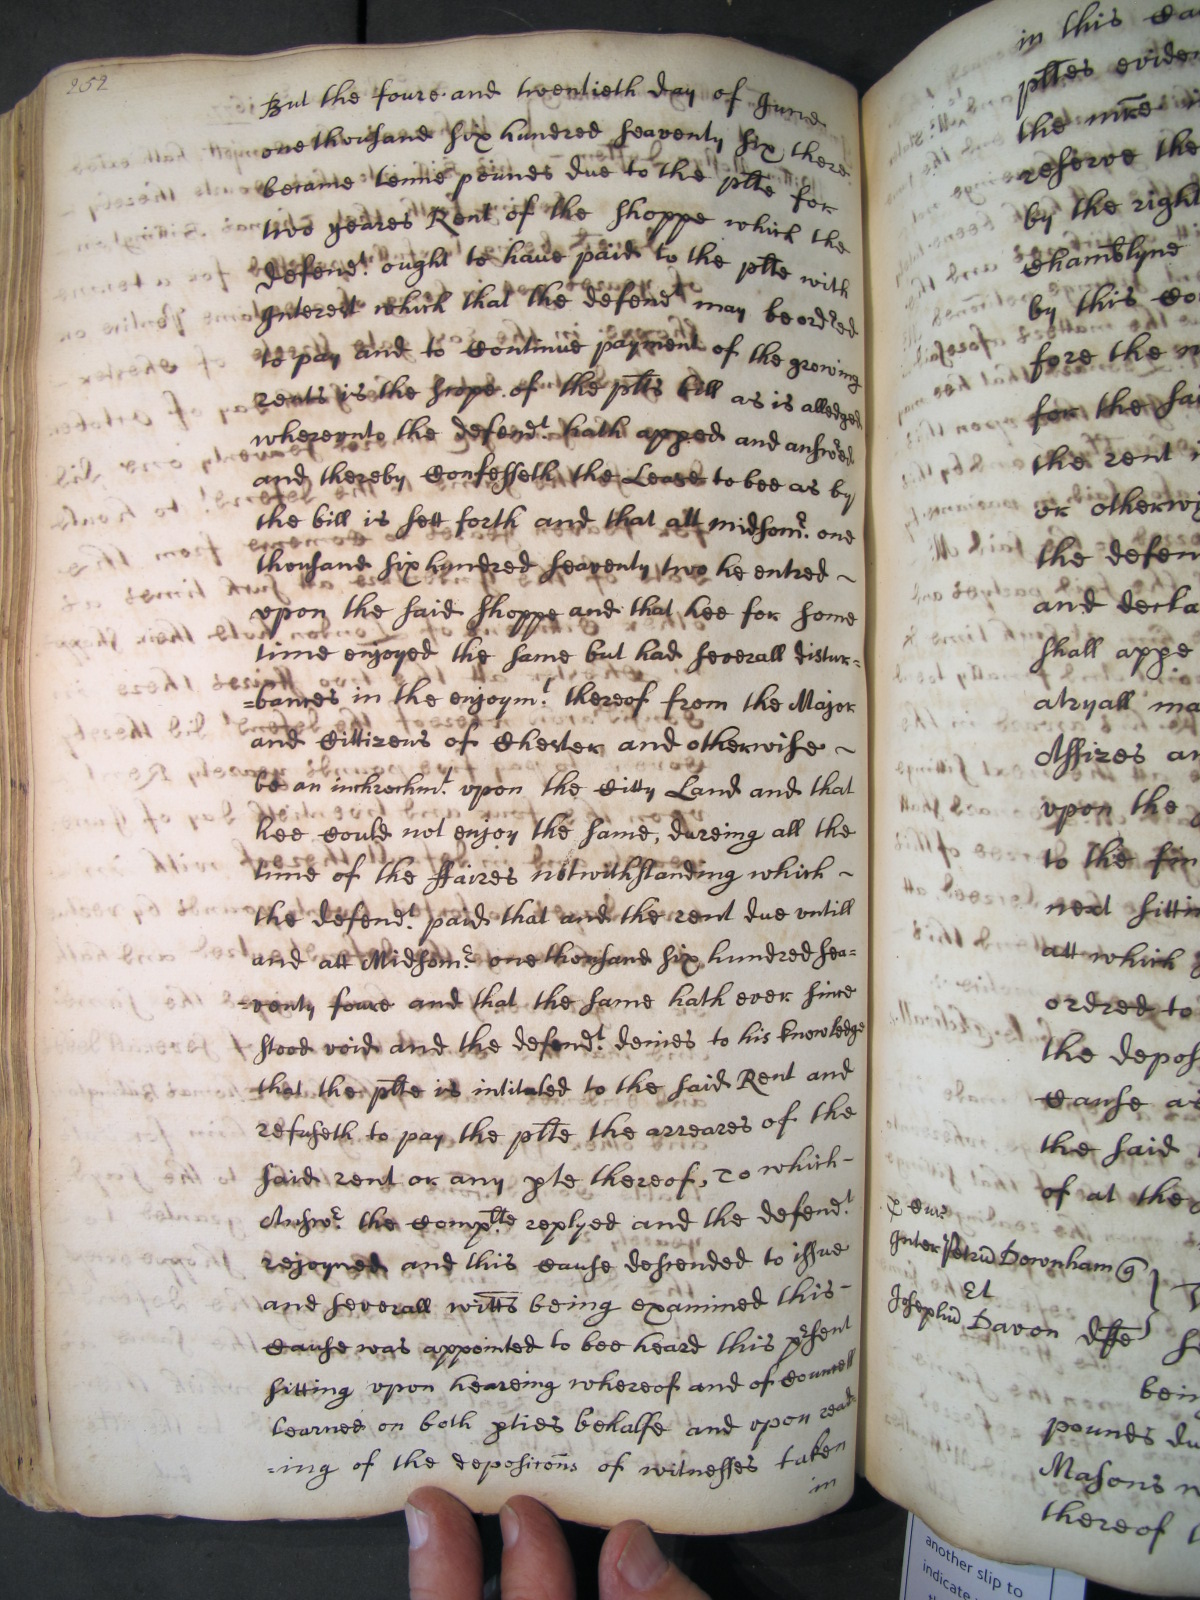 252
But the foure and twentieth day of June
one thousand six hundred seaventy six there
became tenne pounds due to the plte for
two yeares Rent of the shoppe which the
defendt. ought to have paid to the plte with
Interest which that the defendt may be ordred
to pay and to Continue payment of the growing
rents is the scope of the plts bill as is alledged
whereunto the defendt. hath apped and answred
and thereby Confesseth the Lease to bee as by
the bill is sett forth and that att midsomr. one
thousand six hundred seaventy two he entred ~
upon the said shoppe and that hee for some
time enjoyed the same but had severall distur=
=bances in the enjoymt. thereof from the Major
and Cittizens of Chester and otherwise ~
be an inchrochmt. upon the Citty Land and that
hee Could not enjoy the same, dureing all the
time of the ffaires notwithstanding which ~
the defendt. paid that and the rent due untill
and att Midsomr. one thousand six hundred sea=
=venty foure and that the same hath ever since
stood void and the defendt. denies to his knowledge
that the plte is intituled to the said Rent and
refuseth to pay the plte the arreares of the
said rent or any pte thereof, To which-
Answr. the Complte replyed and the defendt.
rejoyned and this Cause descended to issue
and severall witts being examined this-
Cause was appointed to bee heard this prsent
sitting upon heareing whereof and of Councell
learned on both pties behalfe and upon read
=ing of the deposicons of witnesses taken
in
in this Ca
pltes eviden
the
reserve the
by the right
Chamblyne
by this Co
fore the m
for the sa
the rent
or otherw
the defen
and decla
shall appe
atryall ma
Assizes an
upon the
to the fin
next sittin
att which
ordred to
the depos
Cause as
the said
of at the
Inter Petru Downham
Et
Josephu Davon dffte
bein
pounds du
Masons
thereof
another slip to
indicate